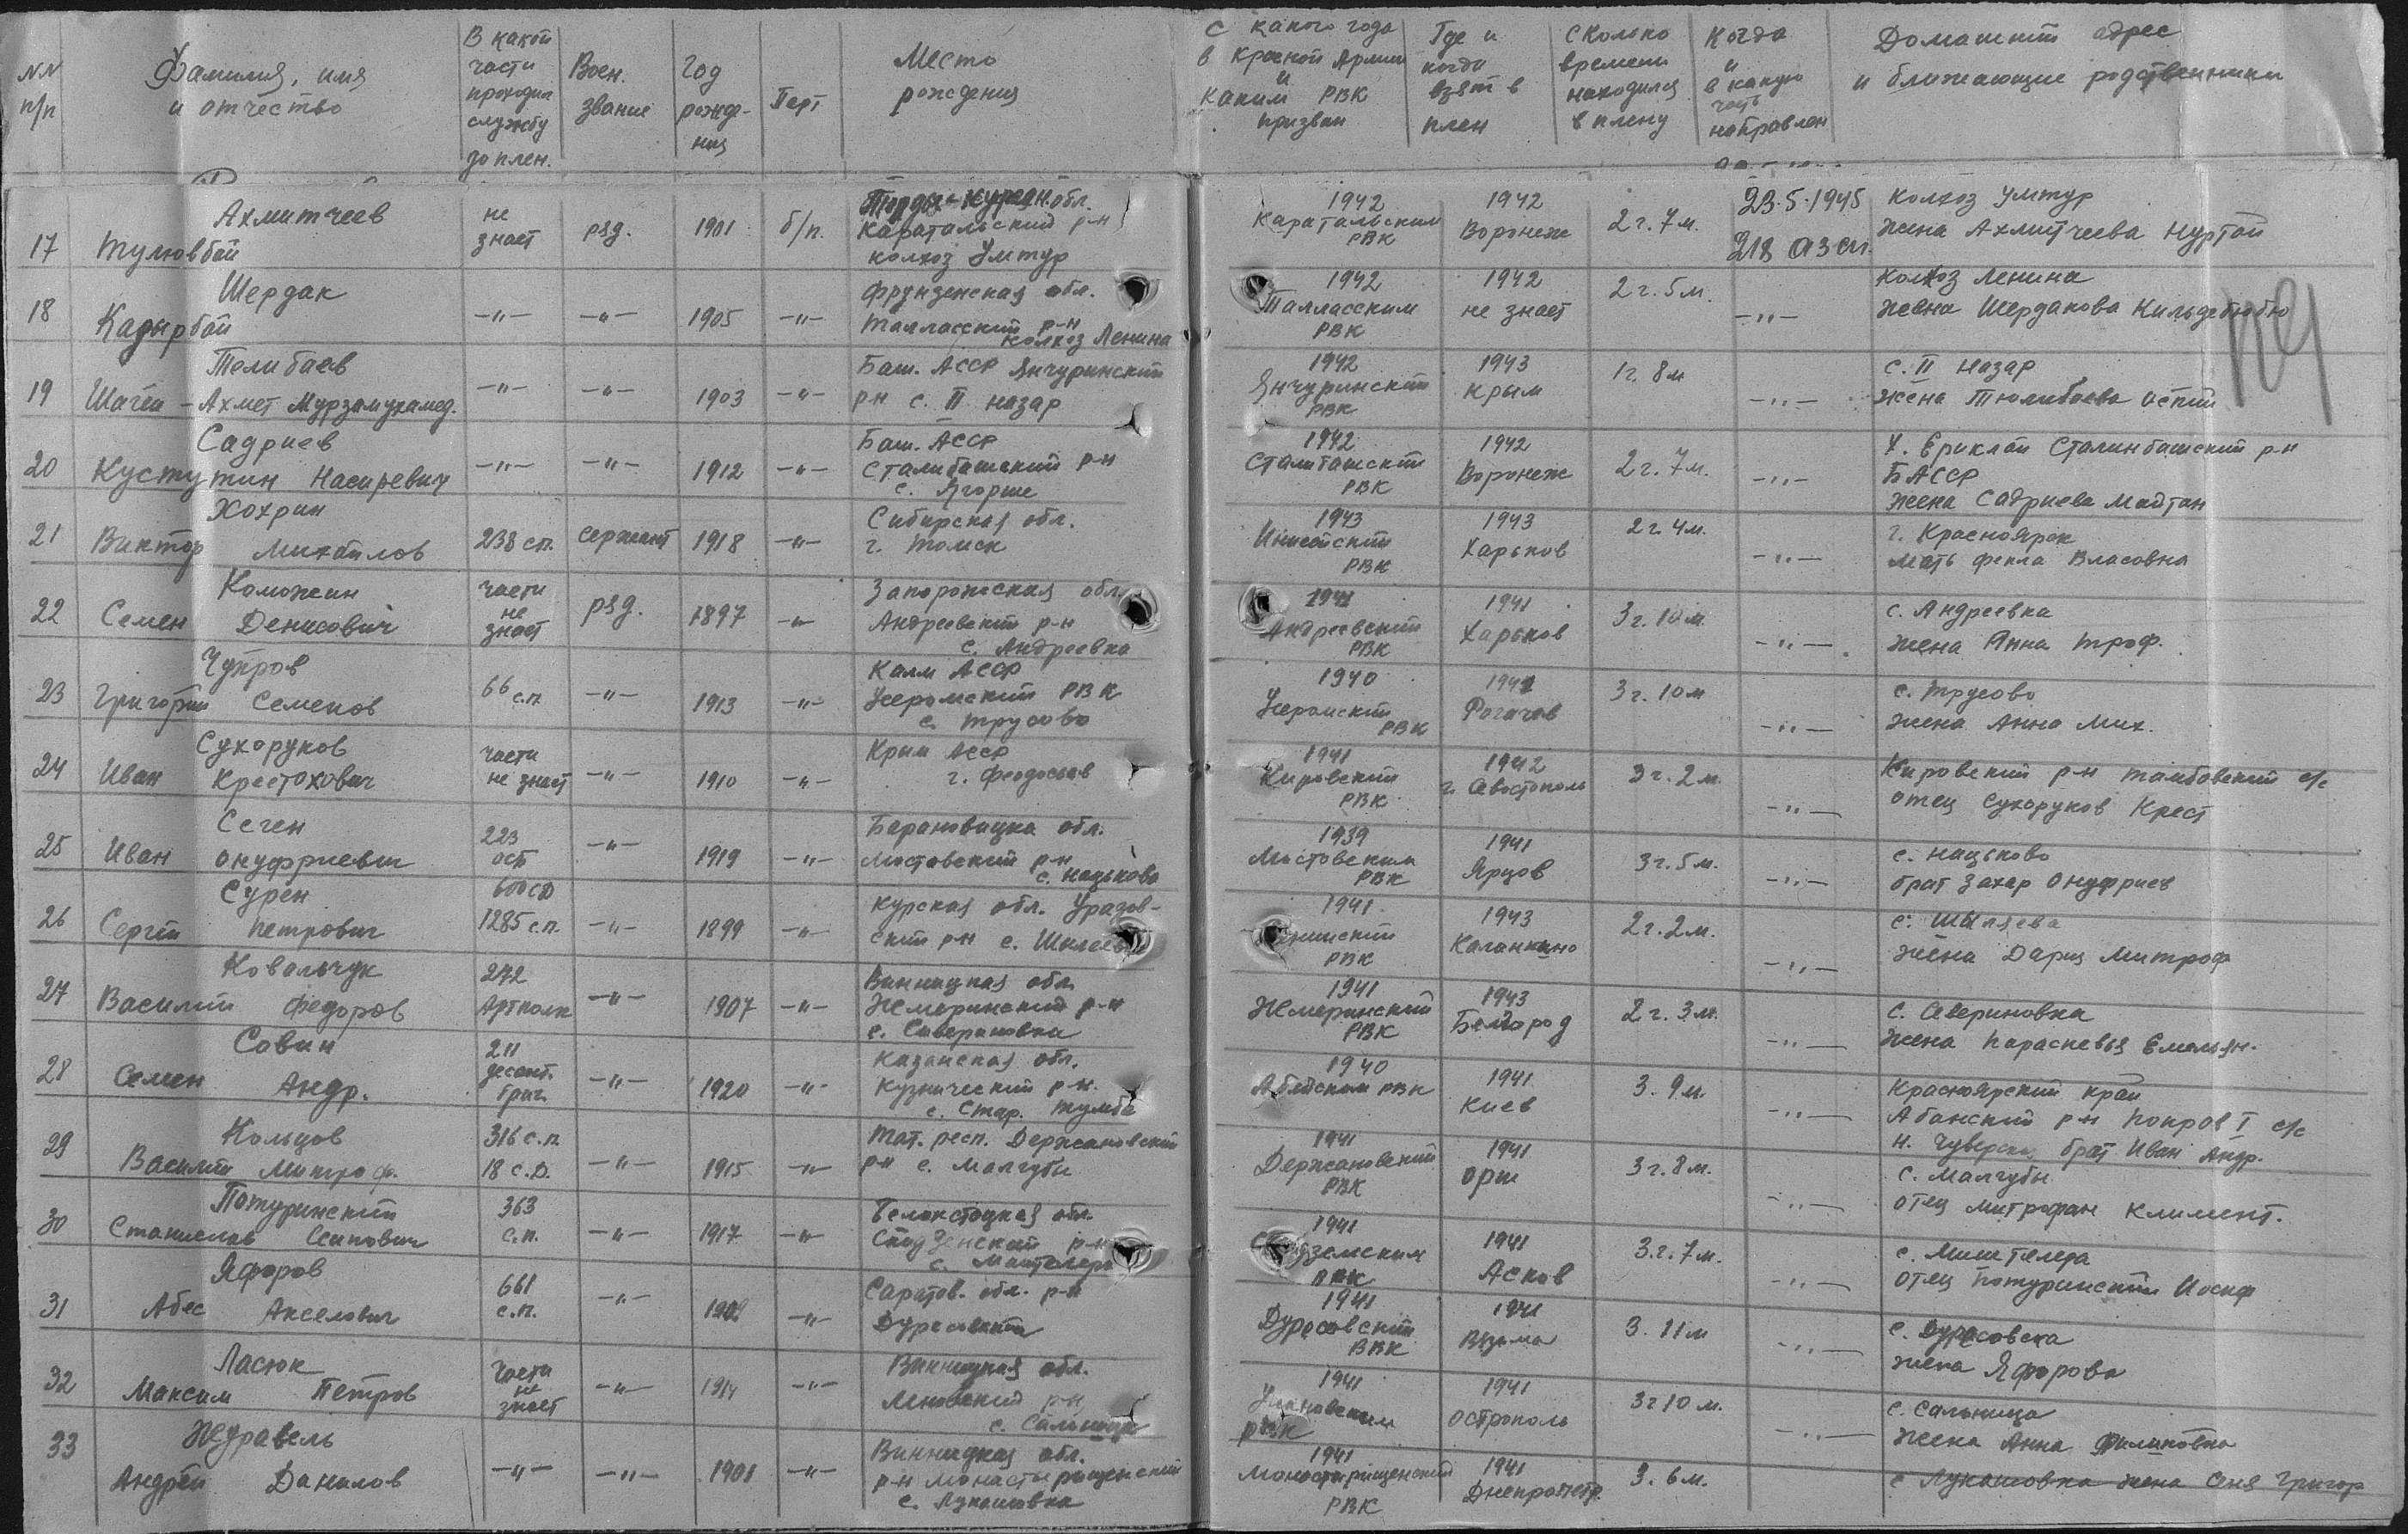 NN п/п
Фамилия, имя и отчество
В какой части проходил службу до плен.
Воен. звание
Год рожде-ния
Парт
Место рождения
С какого года в Красной Армии и каким РВК призван
Где и когда взят в плен
Сколько времени находился в плену
Когда и в какую часть направлен
Домашний адрес и ближающие родственники
17 Ахмитчеев Тулювбай не знает ряд. 1901 б/п. обл. Каратальский р-н колхоз Умтур 1942 Каратальским РВК 1942 Воронеж 2 г. 7 м. 23.5.1945 218 АЗСП. колхоз Умтур жена Ахмитчеева Нуртай
18 Шердак Кадырбай —"— —"— 1905 —"— Фрунзенская обл. Талласский р-н колхоз Ленина 1942 Талласским РВК 1942 не знает 2 г. 5 м. —"— колхоз Ленина жена Шердакова Кильдебюбю
19 Телибаев Шагей-Ахмет Мурзамухамед. —"— —"— 1903 —"— Баш. АССР Янчуринский р-н с. II назар 1942 Янчуринский РВК 1943 Крым 1 г. 8 м —"— с. II назар жена Тюлибаева
20 Садриев Кустутин Насиревич —"— —"— 1912 —"— Баш. АССР Сталибашский р-н с. Ягорше 1942 Сталиташский РВК 1942 Воронеж 2 г. 7 м. —"— х. Ериклай Сталинбашский р-н БАССР жена Садриева Майтан
21 Хохрин Виктор Михайлов 238 сп. сержант 1918 —"— Сибирская обл. г. Томск 1943 РВК 1943 Харьков 2 г. 4 м. —"— г. Красноярск мать Фекла Власовна
22 Коможеин Семен Денисович части не знает ряд. 1897 —"— Запорожская обл. Андреевский р-н с. Андреевка 1941 Андреевский РВК 1941 Харьков 3 г. 10 м. —"— с. Андреевка жена Анна Троф.
23 Чупров Григорий Семенов 66 с.п. —"— 1913 —"— АССР РВК с. Трусово 1940 РВК Рогачов 3 г. 10 м —"— с. Трусово жена Анна Мих.
24 Сухоруков Иван Крестохович части не знает —"— 1910 —"— Крым АССР г. Феодосия 1941 Кировский РВК 1942 г. Севостополь 3 г. 2 м. —"— Кировский р-н Тамбовский с/с отец Сухоруков Крест
25 Сеген Иван Онуфриевич 223 —"— 1919 —"— Барановицка обл. Мостовский р-н с. Нацьково 1939 Мостовским РВК 1941 Ярцов 3 г. 5 м. —"— с. Нацьково брат Захар Онуфриев
26 Сурен Сергей Петрович 1285 с.п. —"— 1899 —"— Курская обл. Уразов-ский р-н с. 1941 РВК 1943 Каланкино 2 г. 2 м. —"— с. Шыляева жена Дария Митроф
27 Ковальчук Василий Федоров 272 Артполк —"— 1907 —"— Винницкая обл. Жмеринский р-н с. Севериновка 1941 Жмеринский РВК 1943 Белгород 2 г. 3 м. —"— с. Севериновка жена Парасковья Емельян.
28 Совин Семен Андр. 211 десант. бриг. —"— 1920 —"— Казанская обл. Кузнический р-н. с. Стар. Тумба 1940 Абадским РВК 1941 Киев 3. 9 м. —"— Красноярский край Абанский р-н Покров I с/с н. брат Иван Андр.
29 Кольцов Василий Митроф. 316 с.п. 18 с.д. —"— 1915 —"— Тат. респ. Держановский р-н с. Малгубы 1941 Держановский РВК 1941 Орш 3 г. 8 м. —"— с. Малгубы отец Митрофан Климент.
30 Потуринский Станислав Осипович 363 с.п. —"— 1917 —"— Белокстоцкая обл. р-н с. 1941 РВК 1941 Асков 3. г. 7 м. —"— с. Миштеледа отец Потуринский Иосиф
31 Яфоров Абес Акселович 661 с.п. —"— —"— Саратов. обл. р-н Дурасовский 1941 Дурасовский РВК 1941 Вязьма 3. 11 м —"— с. Дурасовка жена Яфорова
32 Ласюк Максим Петров части не знает —"— 1914 —"— Винницкая обл. р-н с. Сальница 1941 Улановским РВК 1941 Острополь 3 г 10 м. —"— с. Сальница жена Анна Филиповна
33 Журавель Андрей Данилов —"— —"— 1901 —"— Винницкая обл. р-н Монастырищенский с. Лукашовка 1941 Монастырищенский РВК 1941 Днепропетр. 3. 6 м. с Лукашовка жена Оня Григор